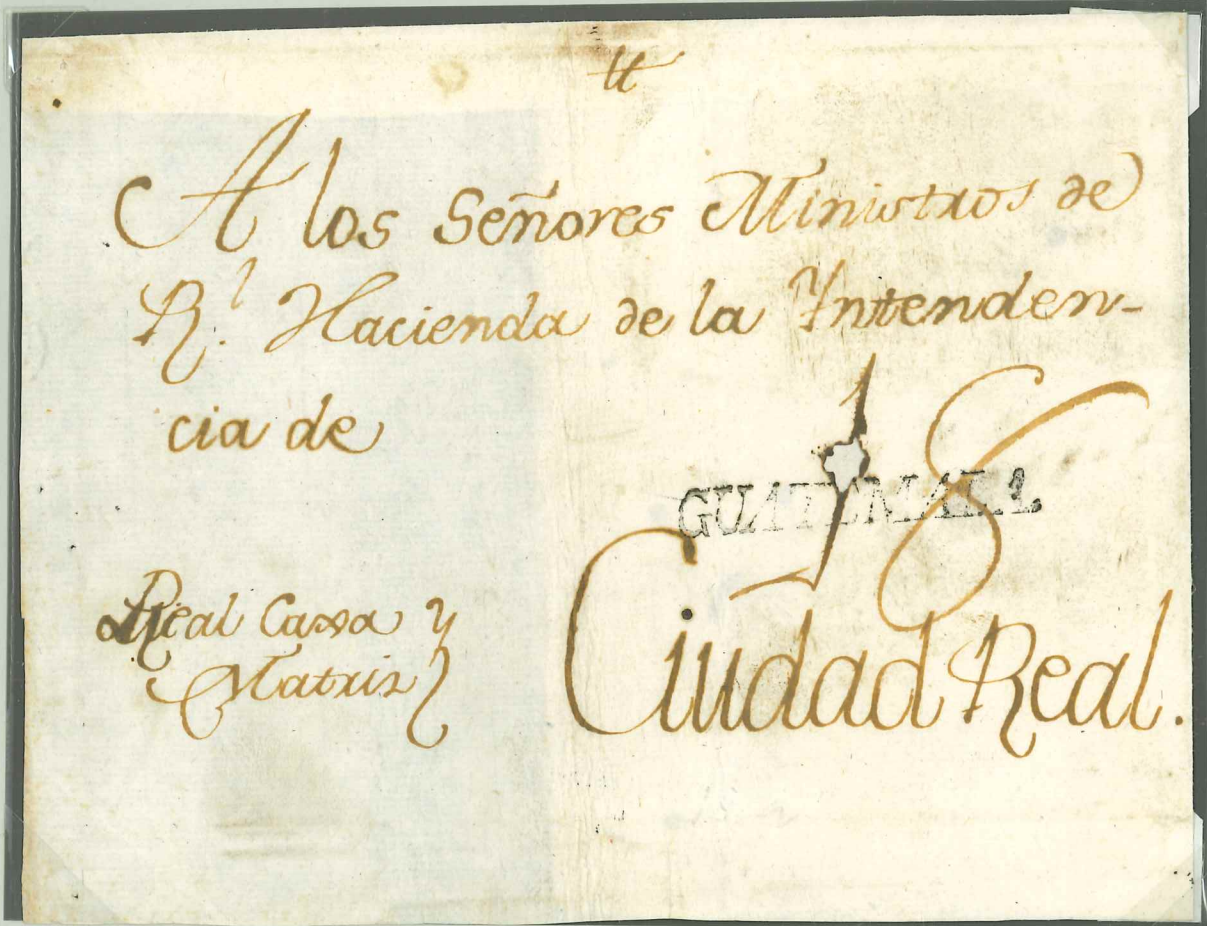 tt
A los Señores Ministros de
R.l Hacienda de la Yntenden-
cia de
18
GUATEMALA.
Real Caxa y
Matriz
Ciudad Real.